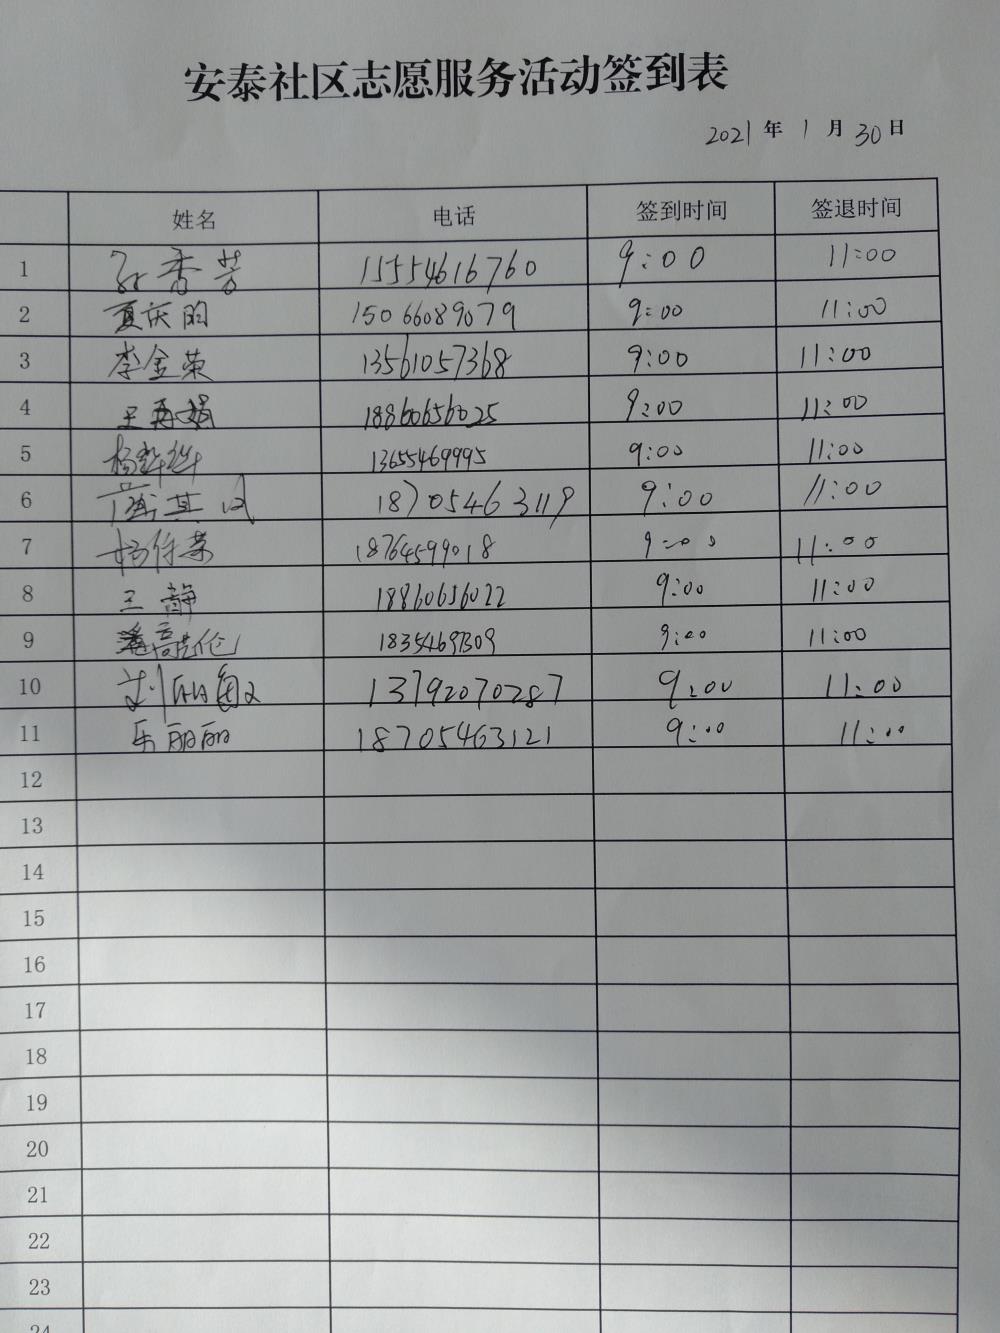 安泰社区志愿服务活动签到表
2021年1月30日
姓名 电话 签到时间 签退时间
1 孙香芳 15554616760 9:00 11:00
2 夏庆明 15066089079 9:00 11:00
3 李金荣 13561057368 9:00 11:00
4 王再娟 18860656025 9:00 11:00
5 杨 13655469995 9:00 11:00
6 其风 18705463119 9:00 11:00
7 杨 荣 18764599018 9:00 11:00
8 王静 18860656022 9:00 11:00
9 9:00 11:00
10 刘 13792070287 9:00 11:00
11 乐丽丽 18705463121 9:00 11:00
12
13
14
15
16
17
18
19
20
21
22
23
24